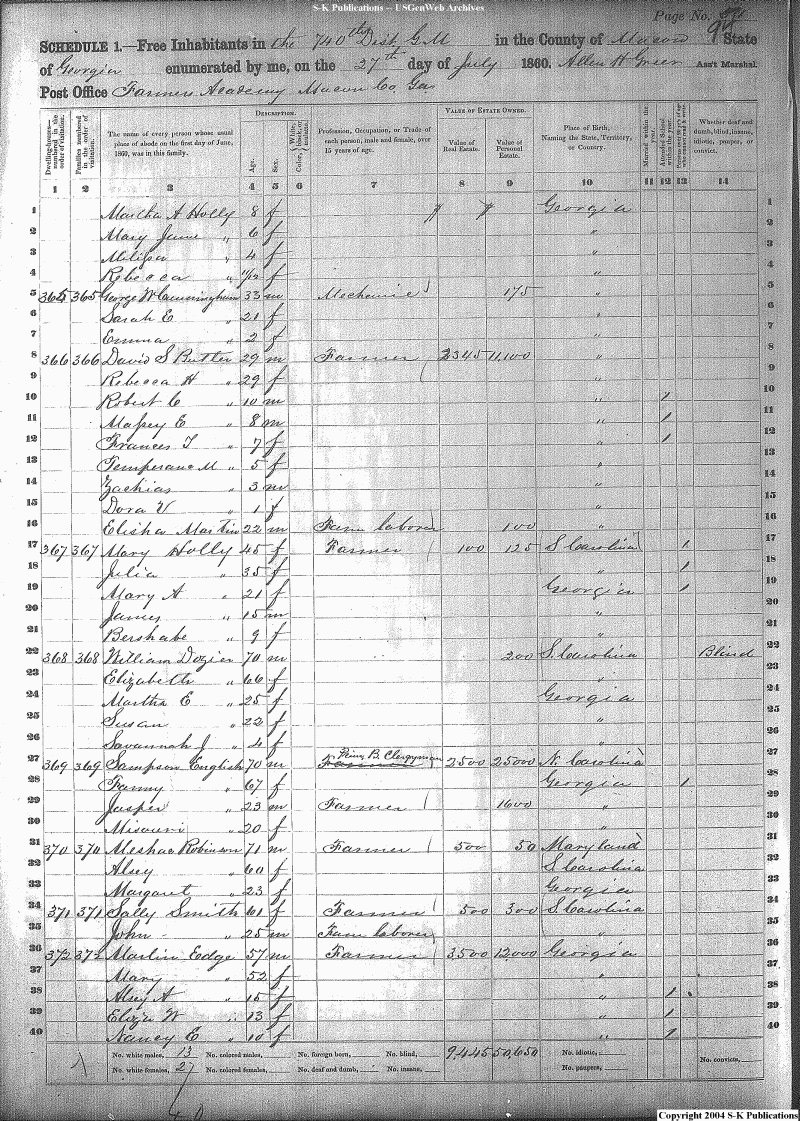 S-K Publications -- USGenWeb Archives
Page No. 98
SCHEDULE 1.—Free Inhabitants in the 740th Dist G.M in the County of Macon State
of Georgia enumerated by me, on the 27th day of July 1860. Allen H Green Ass't Marshal
Post Office Farmers Academy Macon Co. Geo
Dwelling-houses—numbered in the order of visitation. Families numbered in the order of visitation. The name of every person whose usual place of abode on the first day of June, 1860, was in this family. DESCRIPTION. Age. Sex. Color, Profession, Occupation, or Trade of each person, male and female, over 15 years of age. VALUE OF ESTATE OWNED. Value of Real Estate. Value of Personal Estate. Place of Birth, Naming the State, Territory, or Country. Married within the year. Attended School within the year. Whether deaf and dumb, blind, insane, idiotic, pauper, or convict.
1 2 3 4 5 6 7 8 9 10 11 12 13 14
1 Martha A Holly 8 f Georgia 1
2 Mary Jane " 6 f " 2
3 Milissa " 4 f " 3
4 Rebecca " 11/12 f " 4
5 365 365 George W Cunningham 33 m Mechanic 175 " 5
6 Sarah E " 21 f " 6
7 Emma " 2 f " 7
8 366 366 David S Butler 29 m Farmer 2345 11,100 " 8
9 Rebecca H " 29 f " 9
10 Robert C " 10 m " 1 10
11 Massey E " 8 m " 1 11
12 Frances T " 7 f " 1 12
13 Temperance M " 5 f " 13
14 Zachias " 3 m " 14
15 Dora V " 1 f " 15
16 Elisha Martin 22 m Farm laborer 100 " 16
17 367 367 Mary Holly 45 f Farmer 100 125 S Carolina 1 17
18 Julia " 35 f " 1 18
19 Mary A " 21 f Georgia 1 19
20 James " 15 m " 20
21 Bershabe " 9 f " 21
22 368 368 William Dozier 70 m 200 S. Carolina Blind 22
23 Elizabeth " 66 f " 23
24 Martha E " 25 f Georgia 24
25 Susan " 22 f " 25
26 Savannah J " 4 f " 26
27 369 369 Sampson English 70 m Prim. B. Clergyman 2500 25000 N. Carolina 27
28 Fanny " 67 f Georgia 1 28
29 Jasper " 23 m Farmer 1600 " 29
30 Misouri " 20 f " 30
31 370 370 Meshac Robinson 71 m Farmer 500 50 Maryland 31
32 Alsey " 60 f S Carolina 32
33 Margaret " 23 f Georgia 33
34 371 371 Sally Smith 61 f Farmer 500 300 S. Carolina 34
35 John " 25 m Farm laborer " 35
36 372 372 Martin Edge 57 m Farmer 3,500 12000 Georgia 36
37 Mary " 52 f " 37
38 Alsey A " 15 f " 1 38
39 Eliza W " 13 f " 1 39
40 Nancy E " 10 f " 1 40
No. white males, 13 No. colored males, No. foreign born, No. blind, 9,445 50,650 No. idiotic, No. convicts,
No. white females, 27 No. colored females, No. deaf and dumb, No. insane, No. paupers,
40
Copyright 2004 S-K Publications